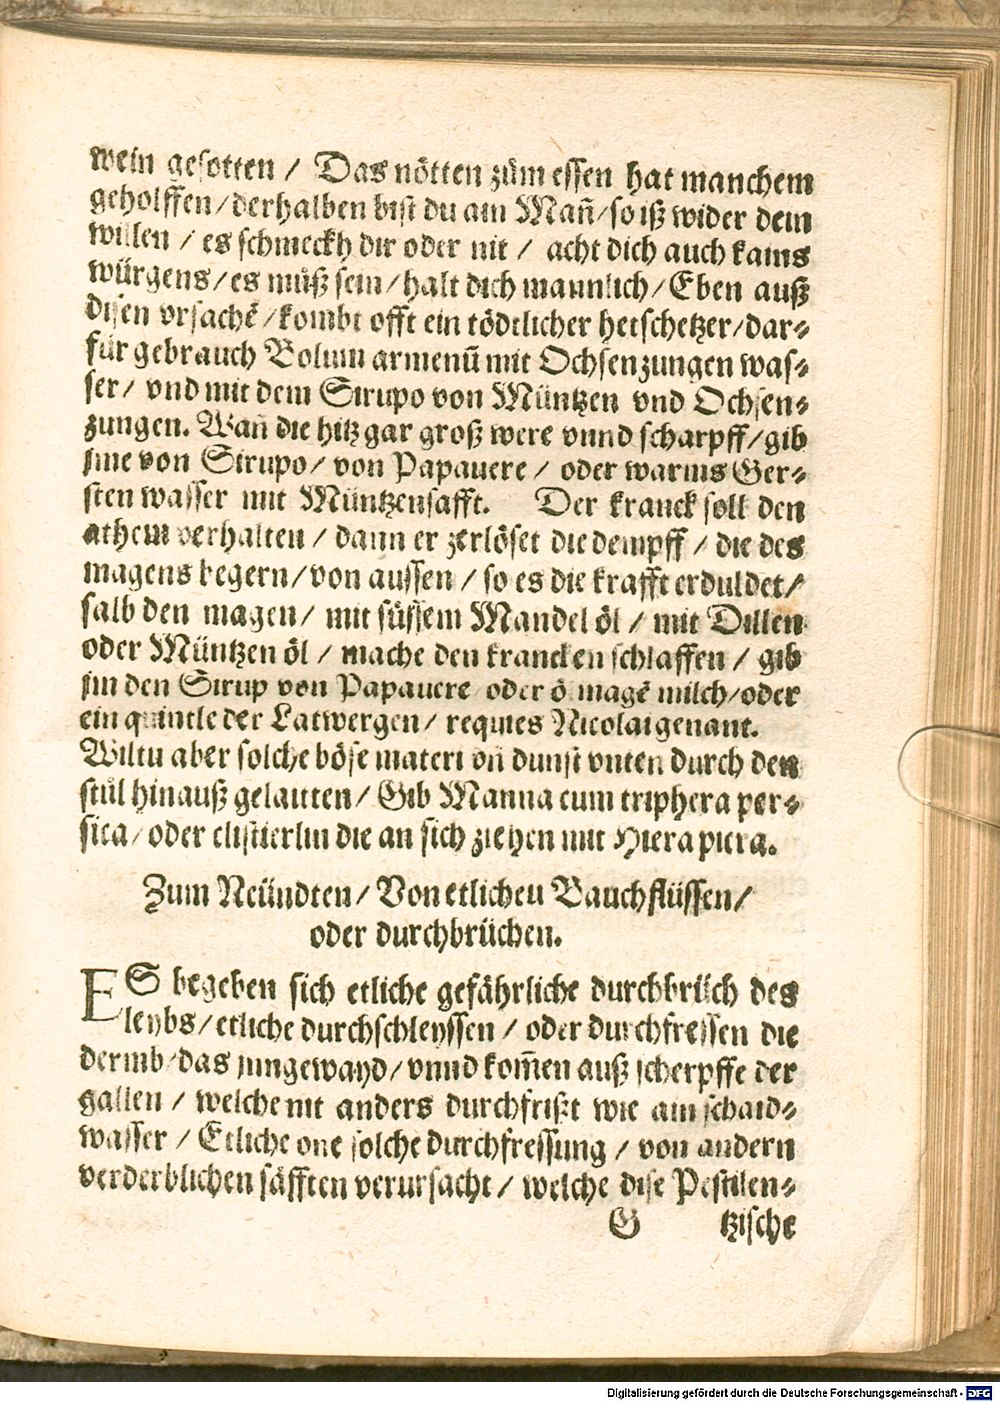 wein gesotten / Das nötten zům essen hat manchem
geholffen / derhalben bist du am Man̄ / so iß wider dem
willen / es schmeckh dir oder nit / acht dich auch kains
würgens / es můß sein / halt dich mannlich / Eben auß
disen vrsachē / kombt offt ein tödtlicher hetschetzer / dar⸗
für gebrauch Bolum armenū mit Ochsenzungen was⸗
ser / vnd mit dem Sirupo von Müntzen vnd Ochsen⸗
zungen. Wan̄ die hitz gar groß were vnnd scharpff / gib
jme von Sirupo / von Papauere / oder warms Ger⸗
sten wasser mit Müntzensafft. Der kranck soll den
athem verhalten / dann er zerlöset die dempff / die des
magens begern / von aussen / so es die krafft erduldet /
salb den magen / mit süssem Mandel öl / mit Dillen
oder Müntzen öl / mache den krancken schlaffen / gib
jm den Sirup von Papauere oder ö magē milch / oder
ein quintle der Latwergen / requies Nicolai genant.
Wiltu aber solche böse materi vn̄ dunst vnten durch den
stůl hinauß gelaitten / Gib Manna cum triphera per⸗
sica / oder clistierlin die an sich ziehen mit Hiera picra.
Zum Neündten / Von etlichen Bauchflüssen /
oder durchbrüchen.
ES begeben sich etliche gefährliche durchbrüch des
leybs / etliche durchschleyssen / oder durchfressen die
dermb / das jnngewayd / vnnd kom̄en auß scherpffe der
gallen / welche nit anders durchfrißt wie ain schaid⸗
wasser / Etliche one solche durchfressung / von andern
verderblichen säfften verursacht / welche dise Pestilen⸗
G tzische
Digitalisierung gefördert durch die Deutsche Forschungsgemeinschaft - DFG